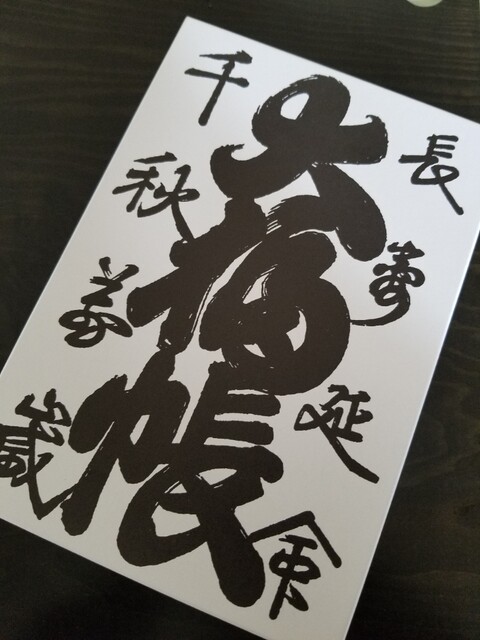 長壽延命
大福帳
千秋萬歳